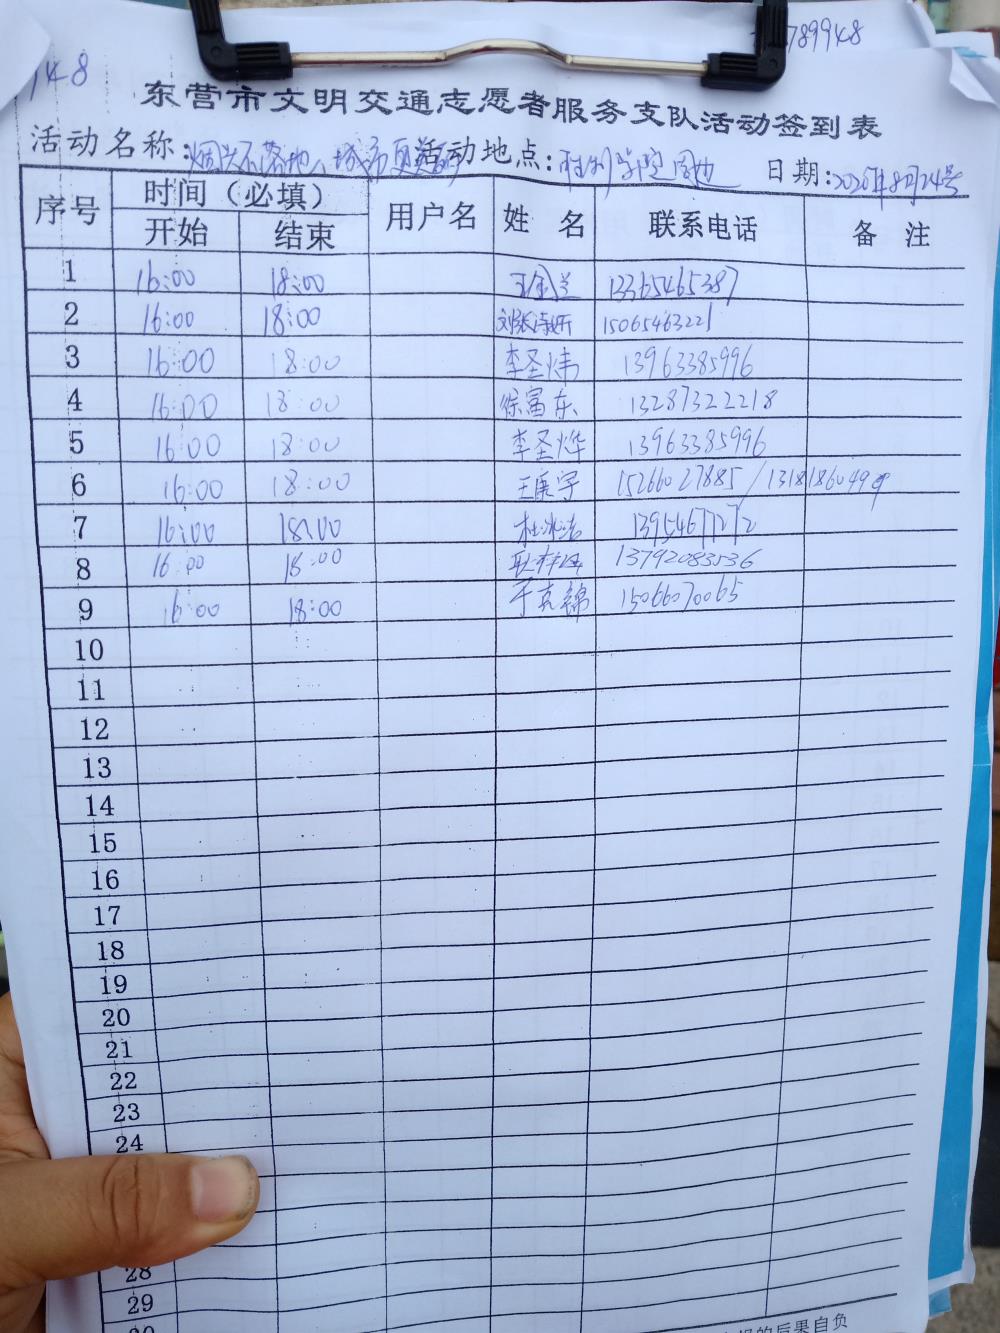 789948
148
东营市文明交通志愿者服务支队活动签到表
活动名称:烟头不落地、城市更美 活动地点:胜利 周边 日期:2020年8月24号
序号 时间（必填） 用户名 姓 名 联系电话 备 注
开始 结束
1 16:00 18:00 13365465387
2 16:00 18:00 15065463221
3 16:00 18:00 李圣炜 13963385996
4 16:00 18:00 徐富东 13287322218
5 16:00 18:00 李圣烨 13963385996
6 16:00 18:00 王康宇 15266027885/
7 16:00 18:00 杜冰洁 13954677272
8 16:00 18:00 13792083536
9 16:00 18:00 于真锦 15066070065
10
11
12
13
14
15
16
17
18
19
20
21
22
23
24
28
29
的后果自负